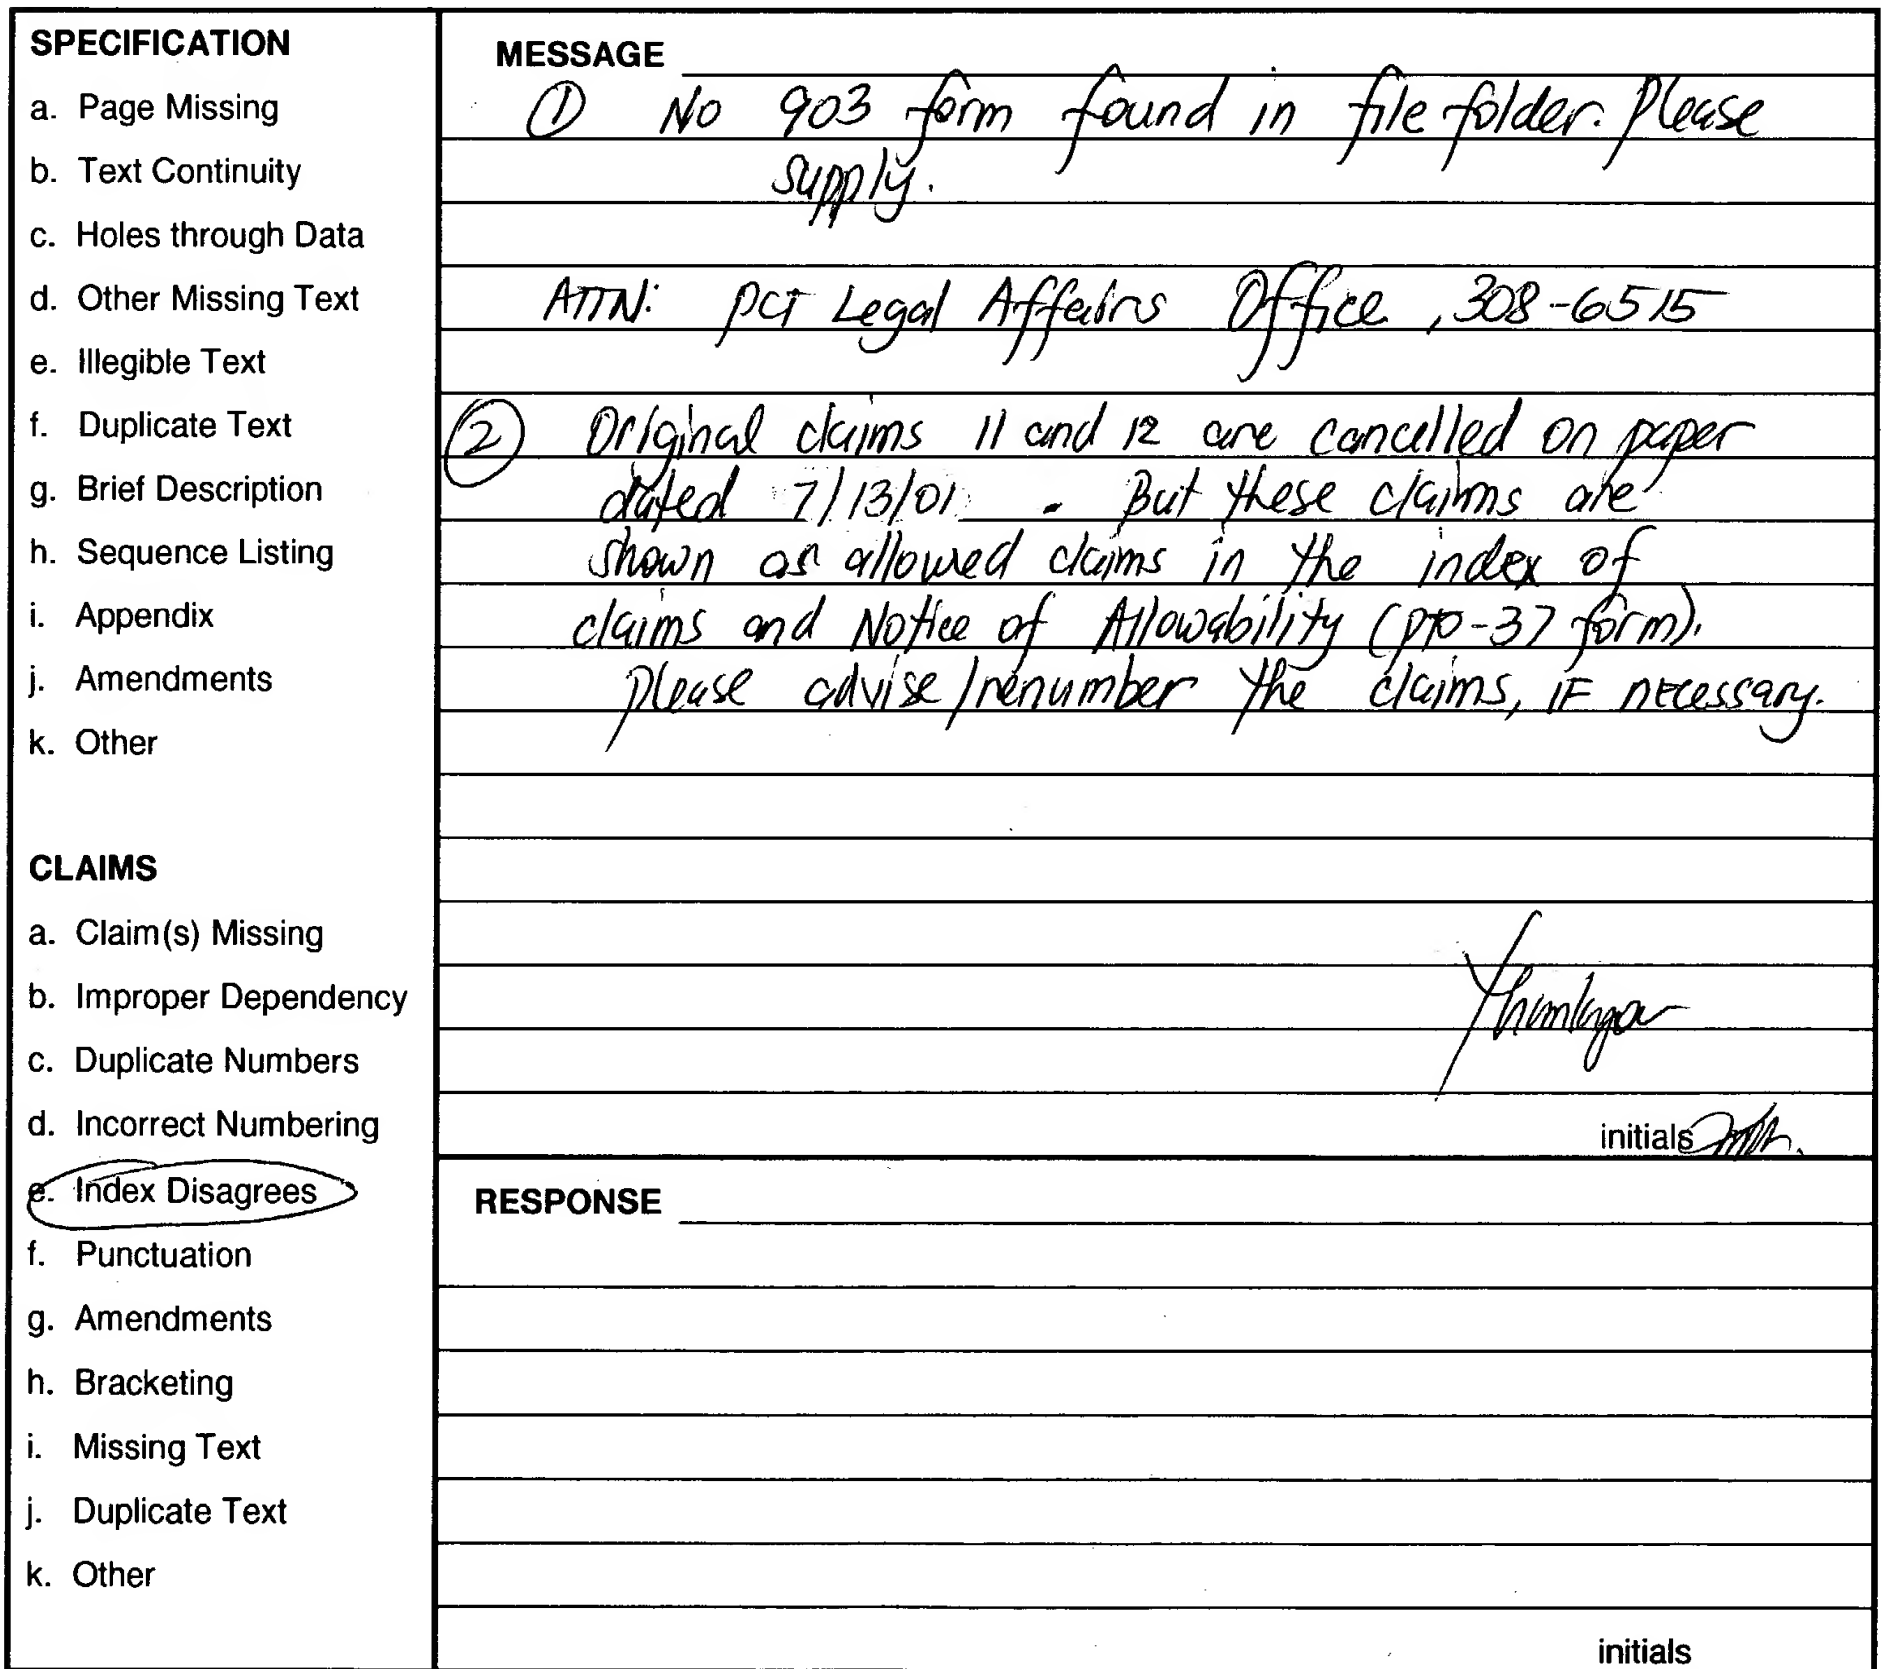 SPECIFICATION
a. Page Missing
b. Text Continuity
c. Holes through Data
d. Other Missing Text
e. Illegible Text
f. Duplicate Text
g. Brief Description
h. Sequence Listing
i. Appendix
j. Amendments
k. Other
CLAIMS
a. Claim(s) Missing
b. Improper Dependency
c. Duplicate Numbers
d. Incorrect Numbering
e. Index Disagrees
f. Punctuation
g. Amendments
h. Bracketing
i. Missing Text
j. Duplicate Text
k. Other
MESSAGE
① No 903 form found in file folder. Please
supply.
ATTN: PCT Legal Affairs Office, 308-6515
② Original claims 11 and 12 are cancelled on paper
dated 7/13/01. But these claims are
shown as allowed claims in the index of
claims and Notice of Allowability (PTO-37 form).
Please advise/renumber the claims, IF necessary.
initials
RESPONSE
initials